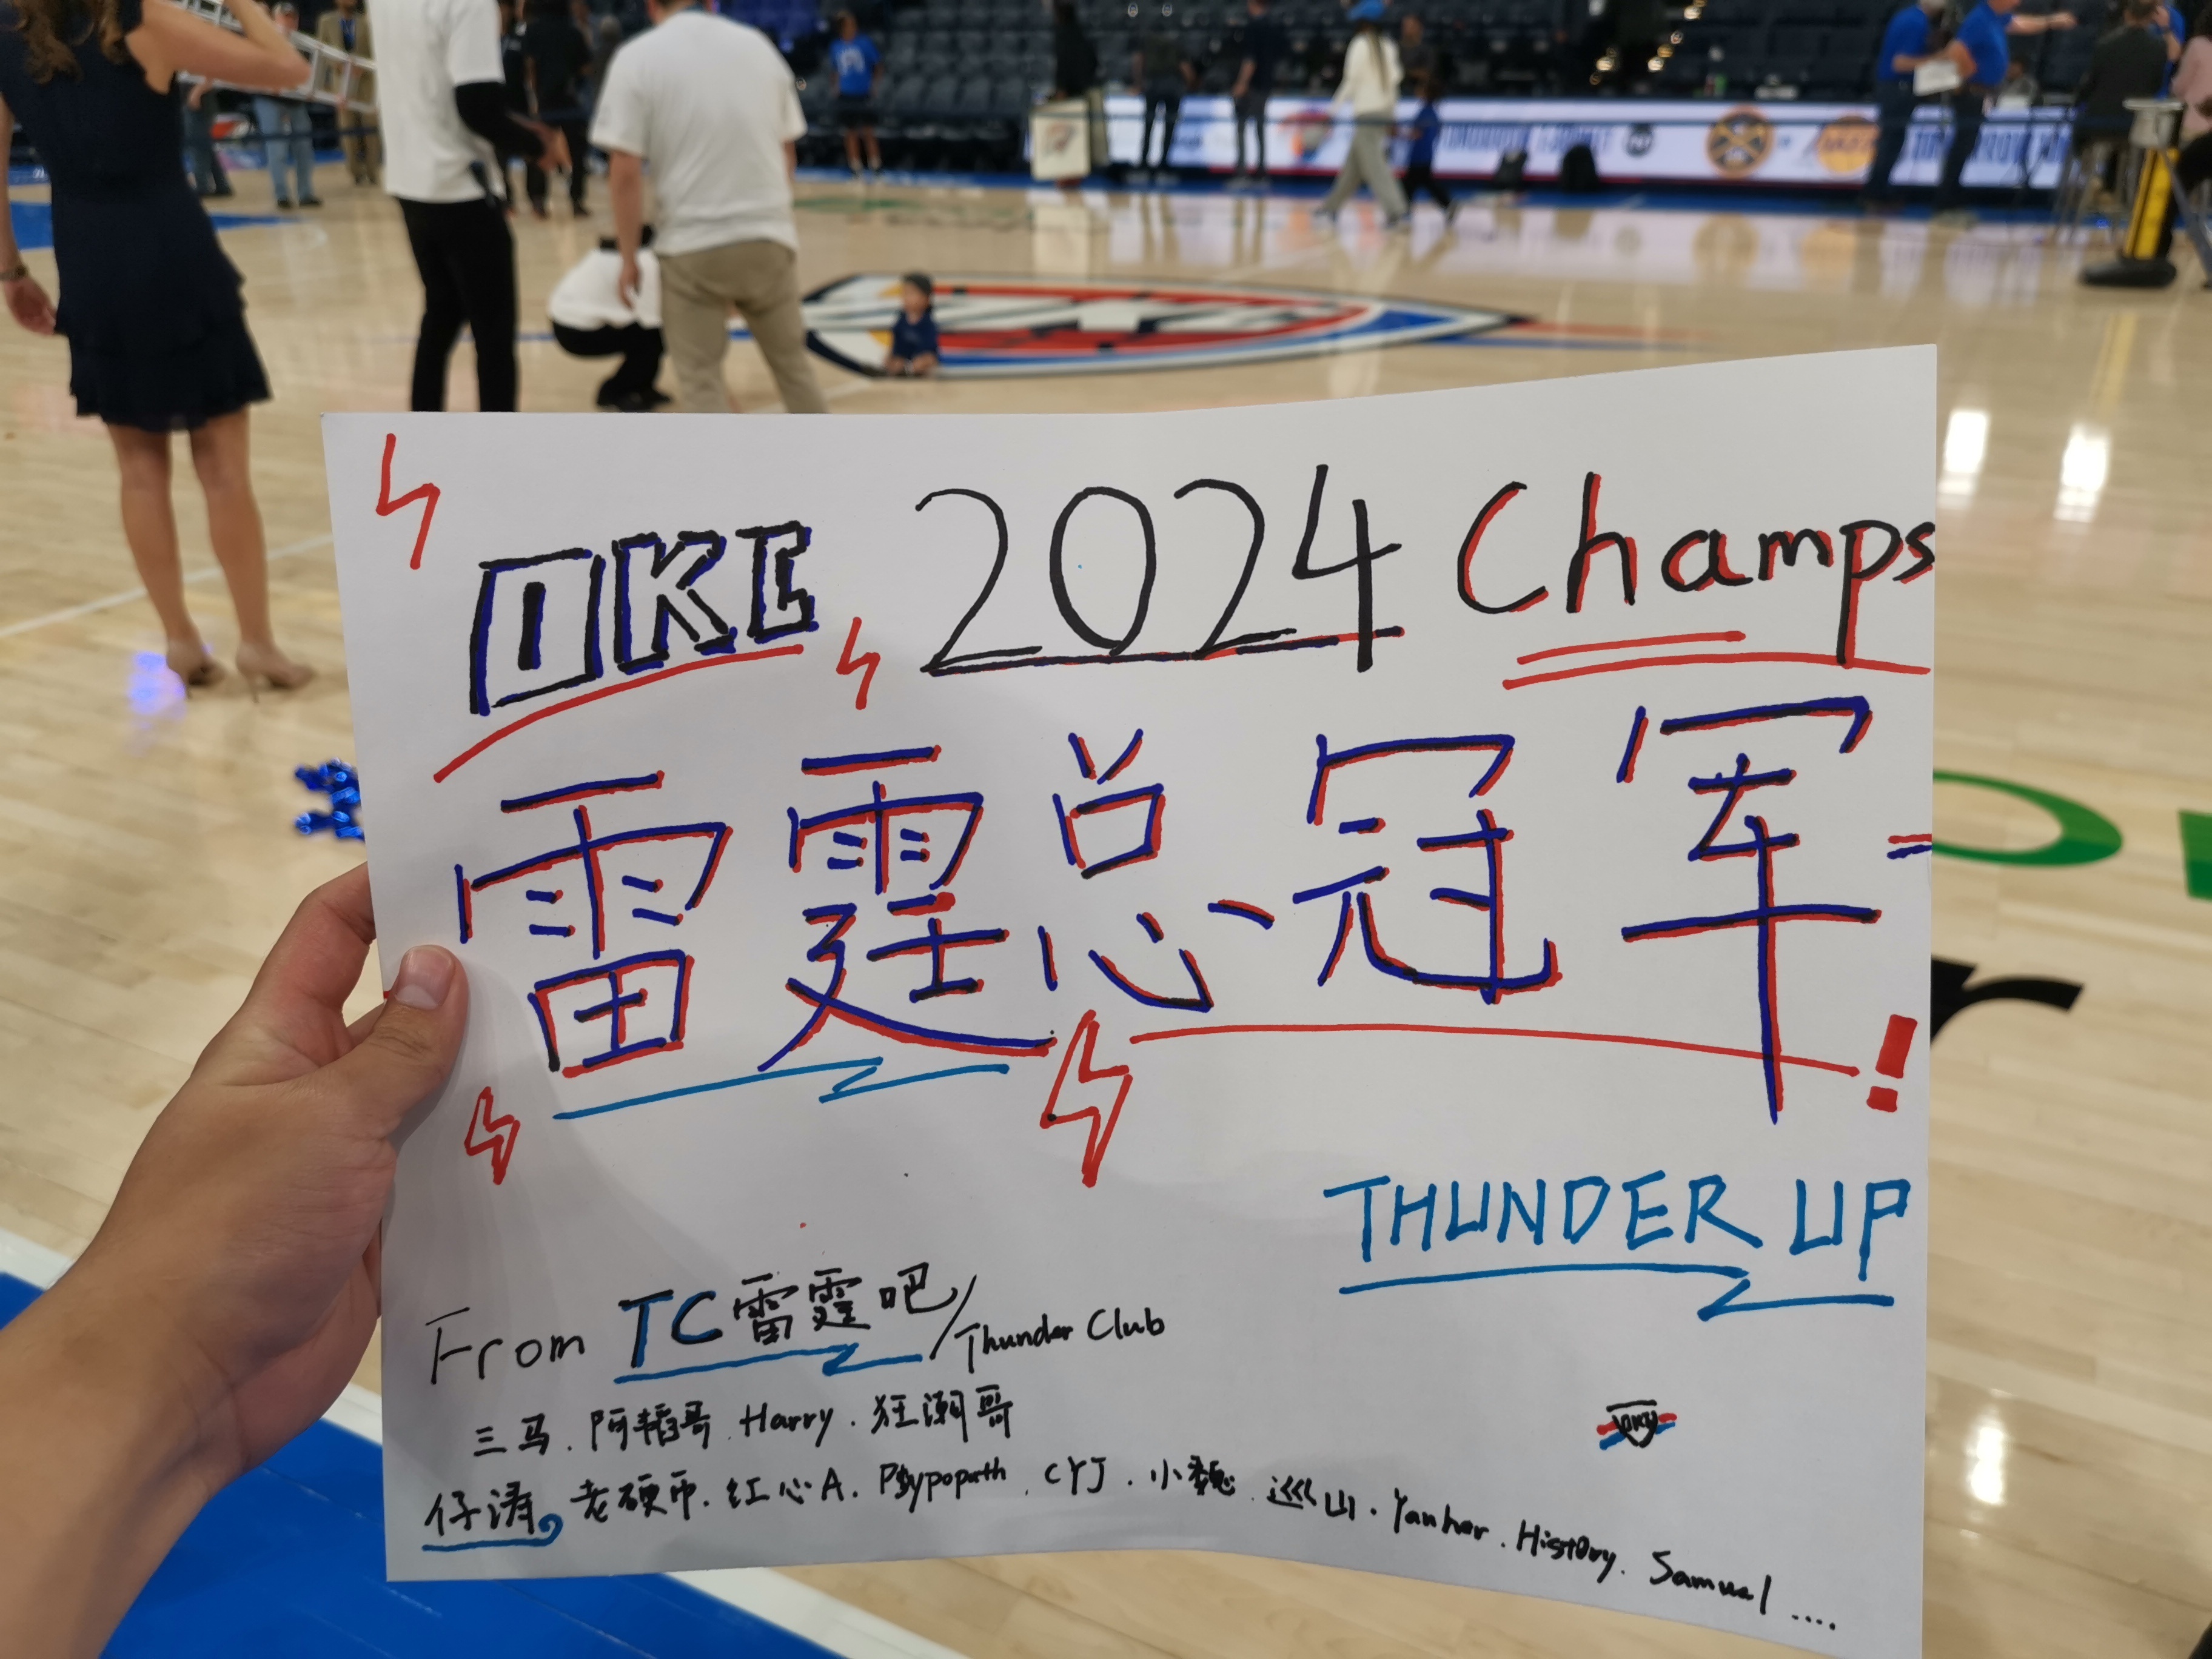 OKC 2024 Champs
雷霆总冠军!
THUNDER UP
From TC雷霆吧/Thunder Club
三马.阿韬哥.Harry.狂潮哥
OKC
仔涛.老硬币.红心A.Psypopath.CYJ.小魏.巡山.Yanher.HistOry.Samual....